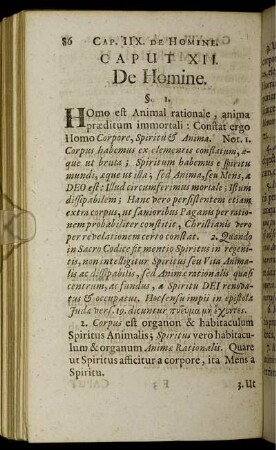 86 CAP. IIX. DE HOMINE.
CAPUT XII.
De Homine.
§. 1.
Homo est Animal rationale, anima
præditum immortali: Constat ergo
Homo Corpore, Spiritu & Anima. Not. 1.
Corpus habemus ex elementis constatum, æ-
que ut bruta; Spiritum habemus e spiritu
mundi, æque ut illa; sed Anima, seu Mens, a
DEO est: Illud circumferimus mortale; Istum
dissipabilem; Hanc vero persistentem etiam
extra corpus, ut sanioribus Paganis per ratio-
nem probabiliter constitit, Christianis vero
per revelationem certo constat. 2. Quando
in Sacro Codice fit mentio Spiritus in regeni-
tis, non intelligitur Spiritus seu Vita Anima-
lis ac dissipabilis, sed Anima rationalis quasi
centrum, ac fundus, a Spiritu DEI renova-
tus & occupatus. Hoc sensu impii in epistola
Judæ vers. 19. dicuntur πνεῦμα μὴ ἔχοντες.
2. Corpus est organon & habitaculum
Spiritus Animalis; Spiritus vero habitacu-
lum & organum Animæ Rationalis. Quare
ut Spiritus afficitur a corpore, ita Mens a
Spiritu.
3. Ut